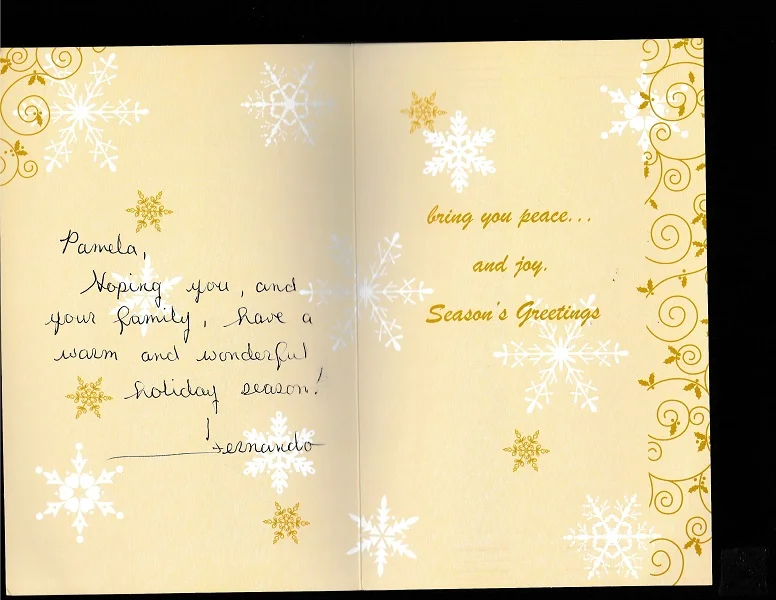 Pamela,
Hoping you, and
your family, have a
warm and wonderful
holiday season!
Fernando
bring you peace...
and joy.
Season's Greetings